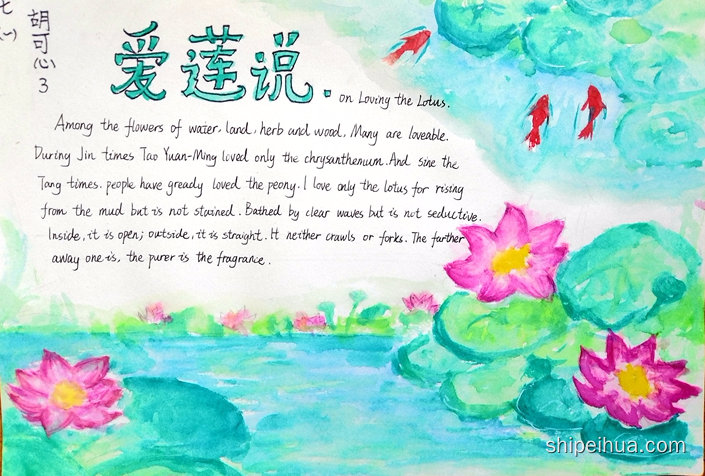 七
(一)
胡可心 3
爱莲说. on Loving the Lotus.
Among the flowers of water, land, herb and wood, Many are loveable.
During Jin times Tao Yuan-Ming loved only the chrysanthemum. And sine the
Tang times. people have gready loved the peony. I love only the lotus for rising
from the mud but is not stained. Bathed by clear waves but is not seductive.
Inside, it is open; outside, it is straight. It neither crawls or forks. The farther
away one is, the purer is the fragrance.
shipeihua.com